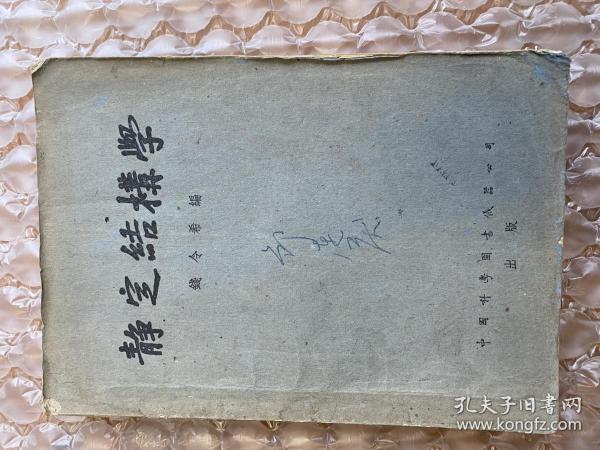 静定结構學
錢令希編
中國科學圖書儀器公司
出版
孔夫子旧书网
www.kongfz.com